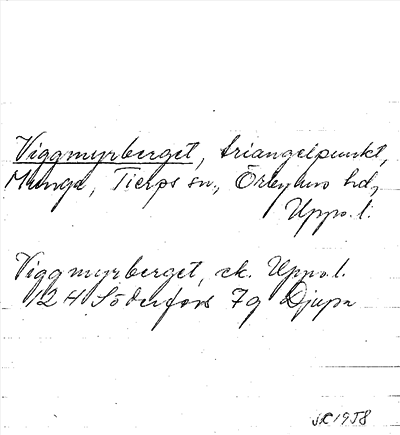 Viggmyrberget, triangelpunkt,
Munga, Tierps sn., Örbyhus hd,
Uppv. l.
Viggmyrberget, ek. Uppv. l.
12 H Söderfors 7g Djupa
1958